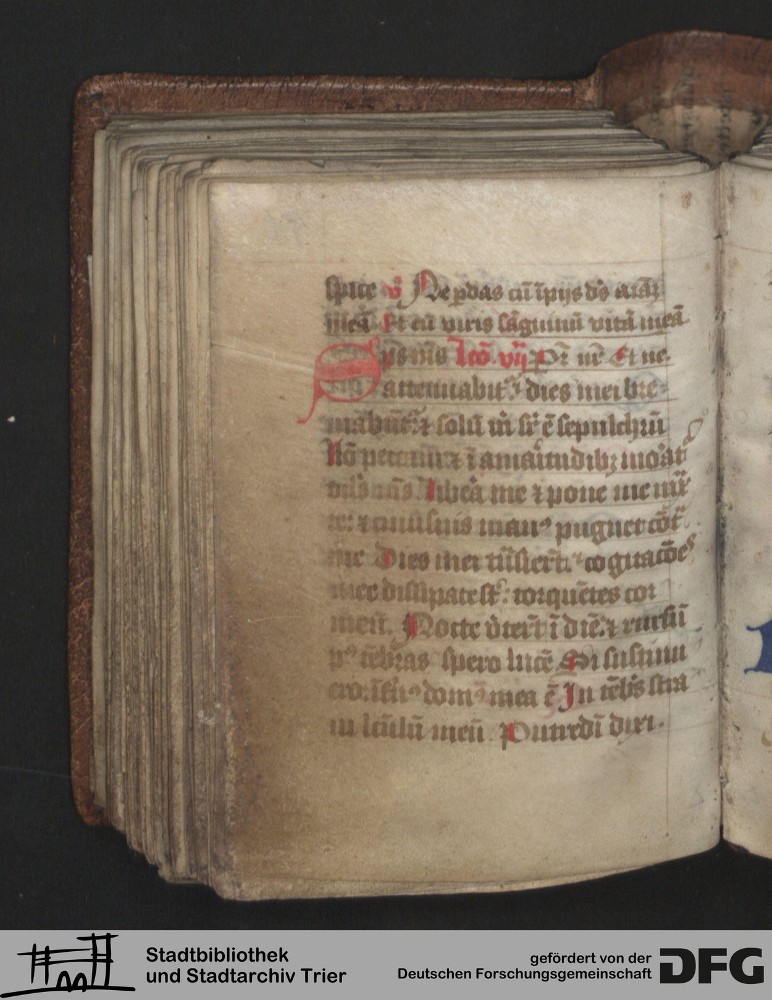 spice v̉ Ne ꝑdas cū īpijs ds aīaꝫ
meā Et cū viris sāguinū vitā meā
S ūs ms lcō. vij Pr̄ nr̄ Et ne.
attenuabit᷑ dies mei bre-
uiabūt᷑ ⁊ solū m̄ sr̄ ē sepulchrū
Nō peccaui ⁊ ī amaritudibꝫ moat᷑
Libeā me ⁊ pone me iux̄
te: ⁊ cuiusuis manꝰ pugnet cōt
me Dies mei tn̄sierūt cogitacōes
mee dissipate sūt: torquētes cor
meū. Nocte v̉terūt ī diē. ⁊ rursū
pꝰ tēbras spero lucē Si sustinu
ero: īfnꝰ domꝰ mea ē In tēbs stra
ui lc̄ulū meū. Putredī dixi.
Stadtbibliothek
und Stadtarchiv Trier
gefördert von der
Deutschen Forschungsgemeinschaft
DFG